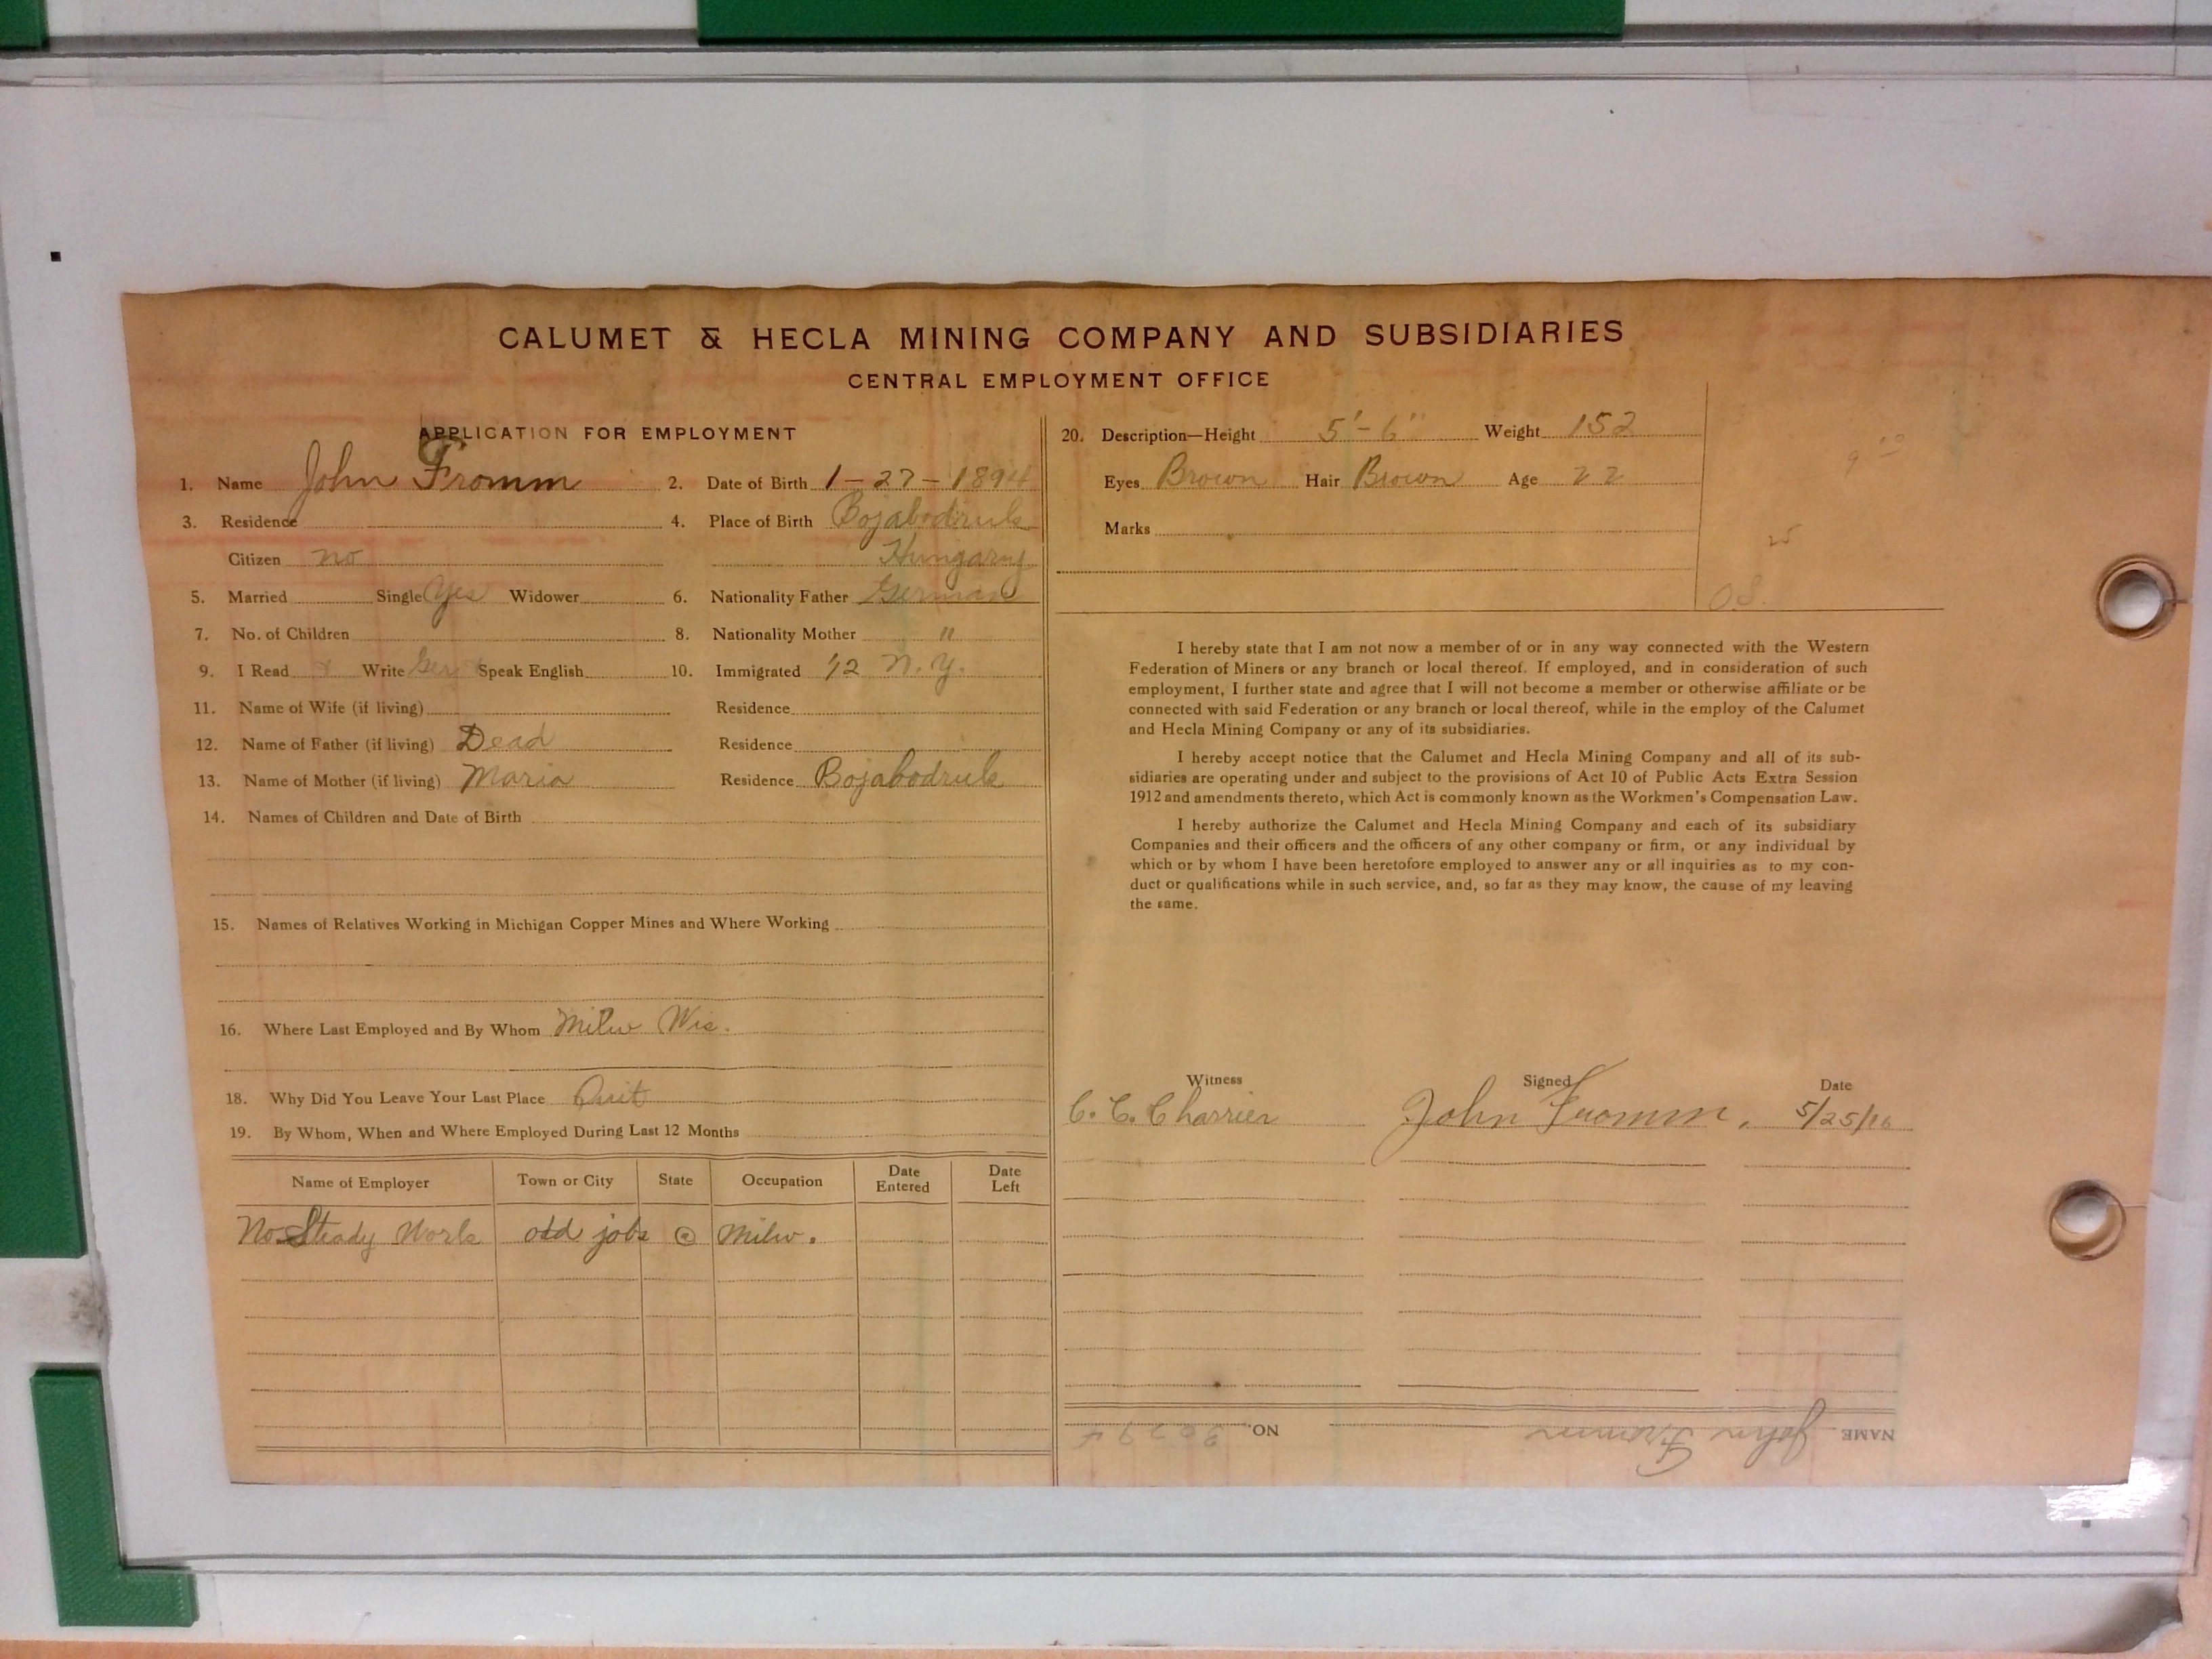 CALUMET & HECLA MINING COMPANY AND SUBSIDIARIES
CENTRAL EMPLOYMENT OFFICE
APPLICATION FOR EMPLOYMENT
1. Name John Fromm 2. Date of Birth 1-27-1894
3. Residence 4. Place of Birth Bojabodruk
Citizen no Hungary
5. Married Single Yes Widower 6. Nationality Father German
7. No. of Children 8. Nationality Mother "
9. I Read Write Ger Speak English 10. Immigrated '12 N.Y.
11. Name of Wife (if living) Residence
12. Name of Father (if living) Dead Residence
13. Name of Mother (if living) Maria Residence Bojabodruk
14. Names of Children and Date of Birth
15. Names of Relatives Working in Michigan Copper Mines and Where Working
16. Where Last Employed and By Whom Milw Wis.
18. Why Did You Leave Your Last Place Quit
19. By Whom, When and Where Employed During Last 12 Months
Name of Employer Town or City State Occupation Date Entered Date Left
No Steady Work odd jobs @ Milw.
20. Description—Height 5'-6" Weight 152
Eyes Brown Hair Brown Age 22
Marks
25
O.S.
I hereby state that I am not now a member of or in any way connected with the Western
Federation of Miners or any branch or local thereof. If employed, and in consideration of such
employment, I further state and agree that I will not become a member or otherwise affiliate or be
connected with said Federation or any branch or local thereof, while in the employ of the Calumet
and Hecla Mining Company or any of its subsidiaries.
I hereby accept notice that the Calumet and Hecla Mining Company and all of its sub-
sidiaries are operating under and subject to the provisions of Act 10 of Public Acts Extra Session
1912 and amendments thereto, which Act is commonly known as the Workmen's Compensation Law.
I hereby authorize the Calumet and Hecla Mining Company and each of its subsidiary
Companies and their officers and the officers of any other company or firm, or any individual by
which or by whom I have been heretofore employed to answer any or all inquiries as to my con-
duct or qualifications while in such service, and, so far as they may know, the cause of my leaving
the same.
Witness Signed Date
C. C. Charrier John Fromm. 5/25/16
NAME John Fromm NO.